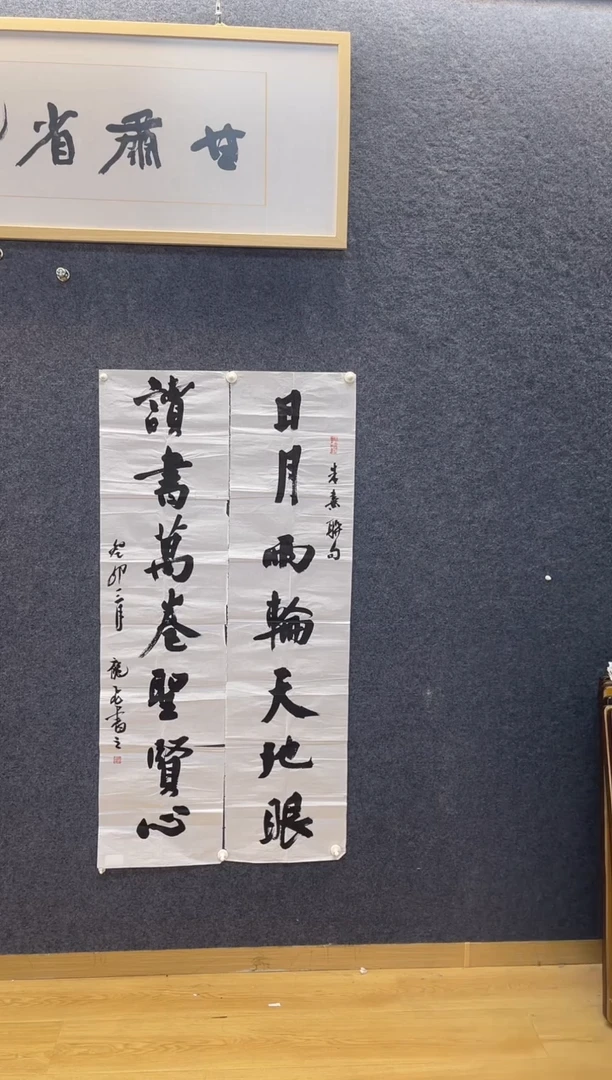 甘肅省
日月兩輪天地眼
朱熹聯句
讀書萬卷聖賢心
癸卯二月
書之